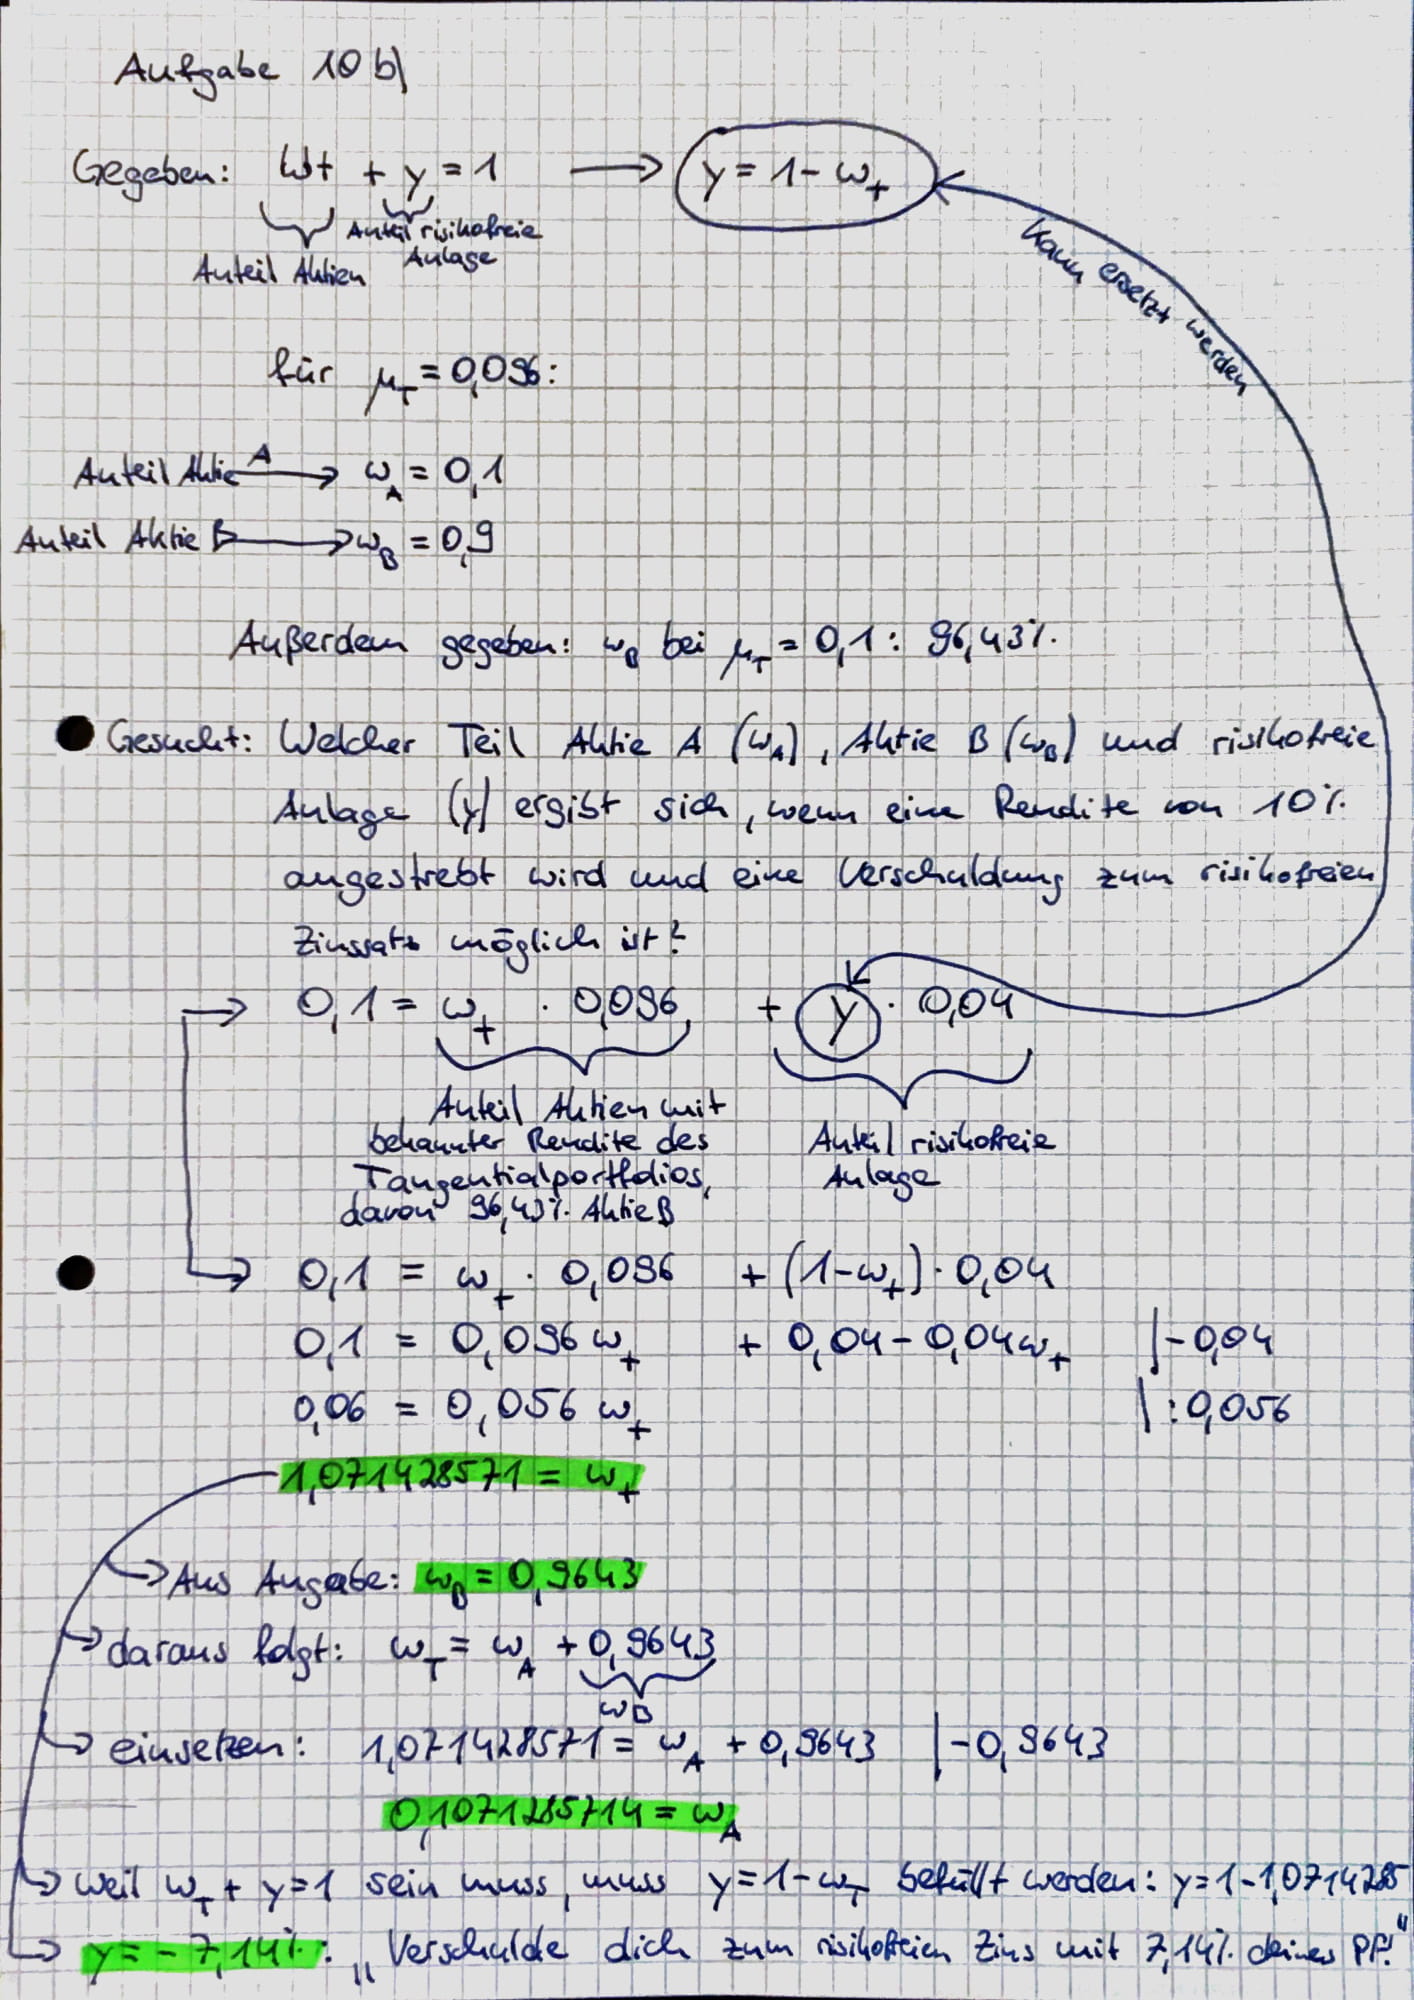 Aufgabe 10 b)
Gegeben: Wt + y = 1 → y = 1 - w_t
Anteil risikofreie
Anlage
Anteil Aktien
Kann ersetzt werden
für μ_T = 0,096:
Anteil Aktie A → w_A = 0,1
Anteil Aktie B → w_B = 0,9
Außerdem gegeben: w_B bei μ_T = 0,1: 96,43%.
Gesucht: Welcher Teil Aktie A (w_A), Aktie B (w_B) und risikofreie
Anlage (y) ergibt sich, wenn eine Rendite von 10%
angestrebt wird und eine Verschuldung zum risikofreien
Zinssatz möglich ist?
→ 0,1 = w_t · 0,096 + y · 0,04
Anteil Aktien mit
bekannter Rendite des
Tangentialportfolios,
davon 96,43% Aktie B
Anteil risikofreie
Anlage
→ 0,1 = w_t · 0,096 + (1-w_t) · 0,04
0,1 = 0,096 w_t + 0,04 - 0,04w_t |-0,04
0,06 = 0,056 w_t |:0,056
1,071428571 = w_t
→ Aus Angabe: w_B = 0,9643
→ daraus folgt: w_T = w_A + 0,9643
w_B
→ einsetzen: 1,071428571 = w_A + 0,9643 |-0,9643
0,1071285714 = w_A
→ weil w_T + y = 1 sein muss, muss y = 1 - w_T befüllt werden: y = 1 - 1,0714285
→ y = - 7,14%: „Verschulde dich zum risikofreien Zins mit 7,14% deines PF!"